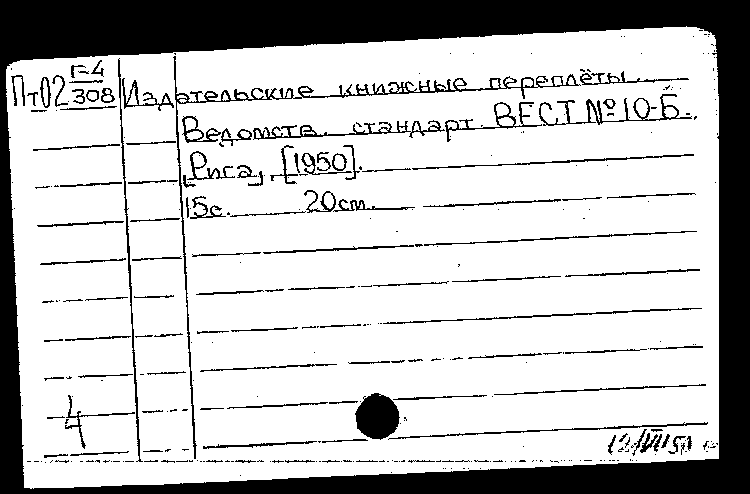 Пт02 г=4/308 Издательские книжные переплёты...
Ведомств. стандарт. ВЕСТ №10-Б.
[Рига], [1950].
15с. 20см.
4
12/VII 51